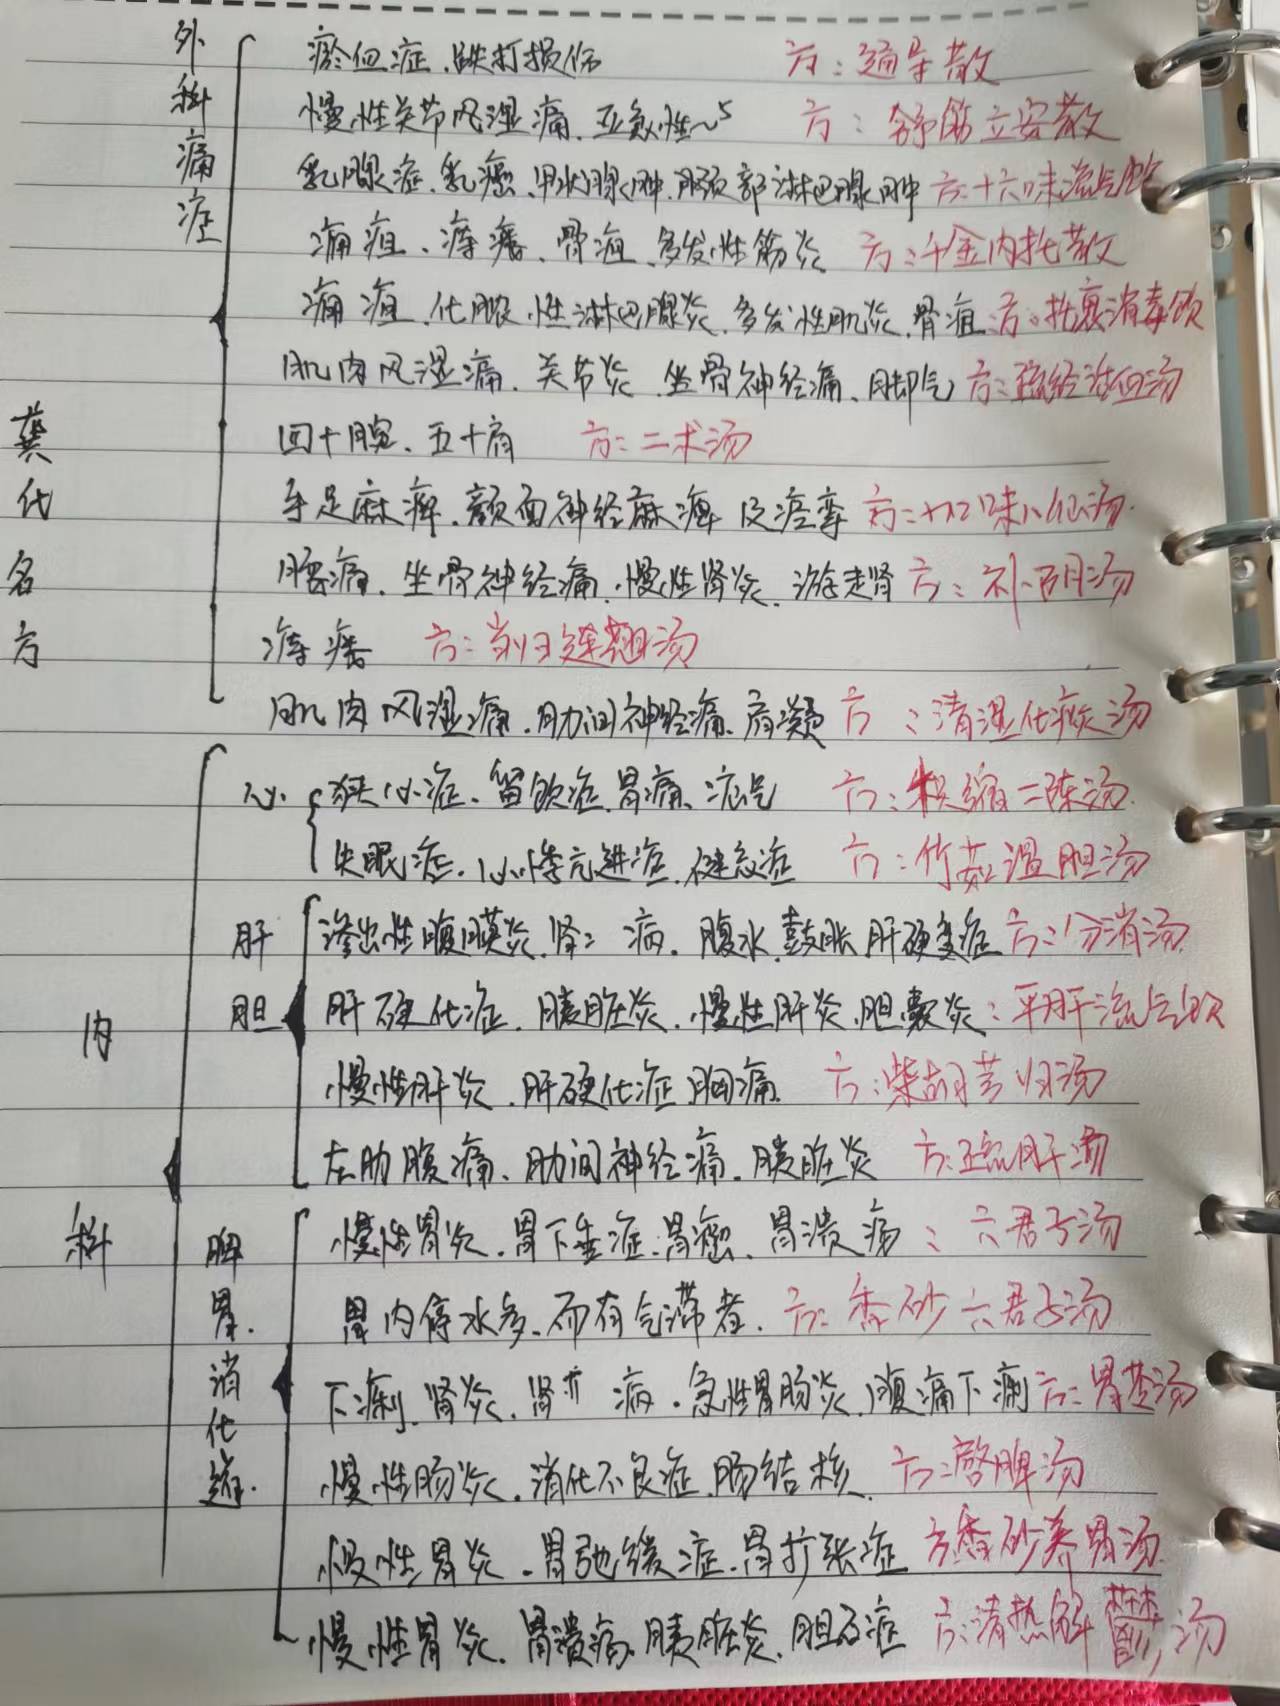 龚代名方
外科痛症
瘀血症、跌打损伤 方：通导散
慢性关节风湿痛、亚急性~ 方：舒筋立安散
乳腺症、乳癌、甲状腺肿、颈部淋巴腺肿 方：十六味流气饮
痈疽、痔瘘、骨疽、多发性筋炎 方：千金内托散
痈疽、化脓性淋巴腺炎、多发性肌炎、骨疽 方：托裹消毒饮
肌肉风湿痛、关节炎、坐骨神经痛、脚气 方：疏经活血汤
四十腕、五十肩 方：二术汤
手足麻痹、颜面神经麻痹及痉挛 方：味八仙汤
腰痛、坐骨神经痛、慢性肾炎、游走肾 方：补阴汤
痔瘘 方：当归连翘汤
肌肉风湿痛、肋间神经痛、肩凝 方：清湿化痰汤
内科
心
狭心症、留饮症、胃痛、疝气 方：枳缩二陈汤
失眠症、心悸亢进症、健忘症 方：竹茹温胆汤
肝胆
渗出性腹膜炎、肾病、腹水、鼓胀、肝硬变症 方：分消汤
肝硬化症、胰脏炎、慢性肝炎、胆囊炎：平肝流气饮
慢性肝炎、肝硬化症、胸痛 方：柴胡芎归汤
左肋腹痛、肋间神经痛、胰脏炎 方：疏肝汤
脾胃、消化道
慢性胃炎、胃下垂症、胃癌、胃溃疡：六君子汤
胃内停水多、而有气滞者、方：香砂六君子汤
下痢、肾炎、肾病、急性胃肠炎、腹痛下痢 方：胃苓汤
慢性肠炎、消化不良症、肠结核 方：启脾汤
慢性胃炎、胃弛缓症、胃扩张症 方香砂养胃汤
慢性胃炎、胃溃疡、胰脏炎、胆石症 方：清热解鬱汤